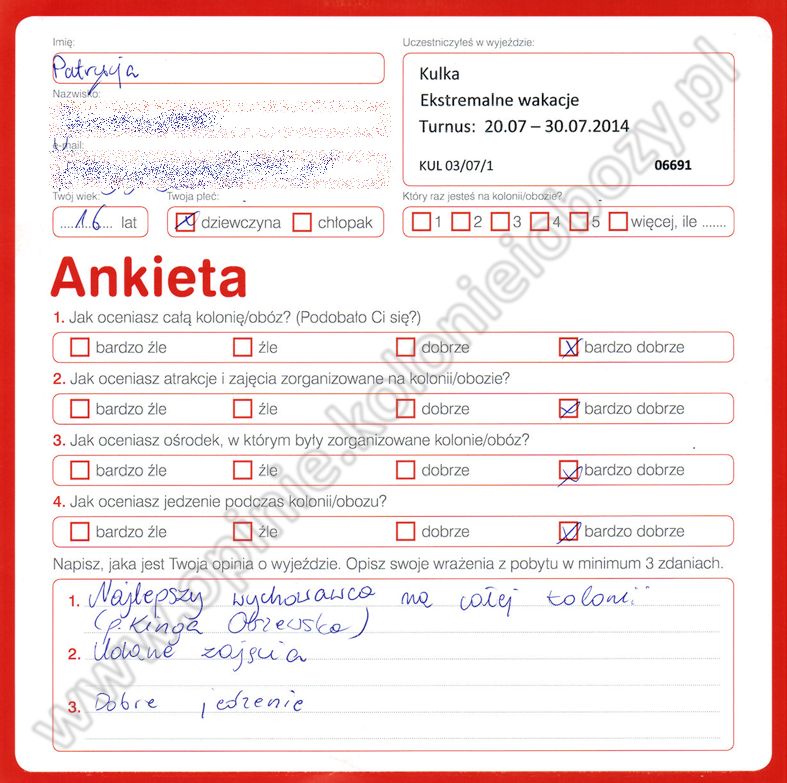 Imię:
Patrycja
Nazwisko:
e-mail:
Twój wiek:
16 lat
Twoja płeć:
dziewczyna chłopak
Uczestniczyłeś w wyjeździe:
Kulka
Ekstremalne wakacje
Turnus: 20.07 – 30.07.2014
KUL 03/07/1 06691
Który raz jesteś na kolonii/obozie?
1 2 3 4 5 więcej, ile .......
Ankieta
1. Jak oceniasz całą kolonię/obóz? (Podobało Ci się?)
bardzo źle źle dobrze bardzo dobrze
2. Jak oceniasz atrakcje i zajęcia zorganizowane na kolonii/obozie?
bardzo źle źle dobrze bardzo dobrze
3. Jak oceniasz ośrodek, w którym były zorganizowane kolonie/obóz?
bardzo źle źle dobrze bardzo dobrze
4. Jak oceniasz jedzenie podczas kolonii/obozu?
bardzo źle źle dobrze bardzo dobrze
Napisz, jaka jest Twoja opinia o wyjeździe. Opisz swoje wrażenia z pobytu w minimum 3 zdaniach.
1. Najlepszy wychowawca na całej kolonii
(p. Kinga)
2. Udane zajęcia
3. Dobre jedzenie
www.opinie.kolonieiobozy.pl